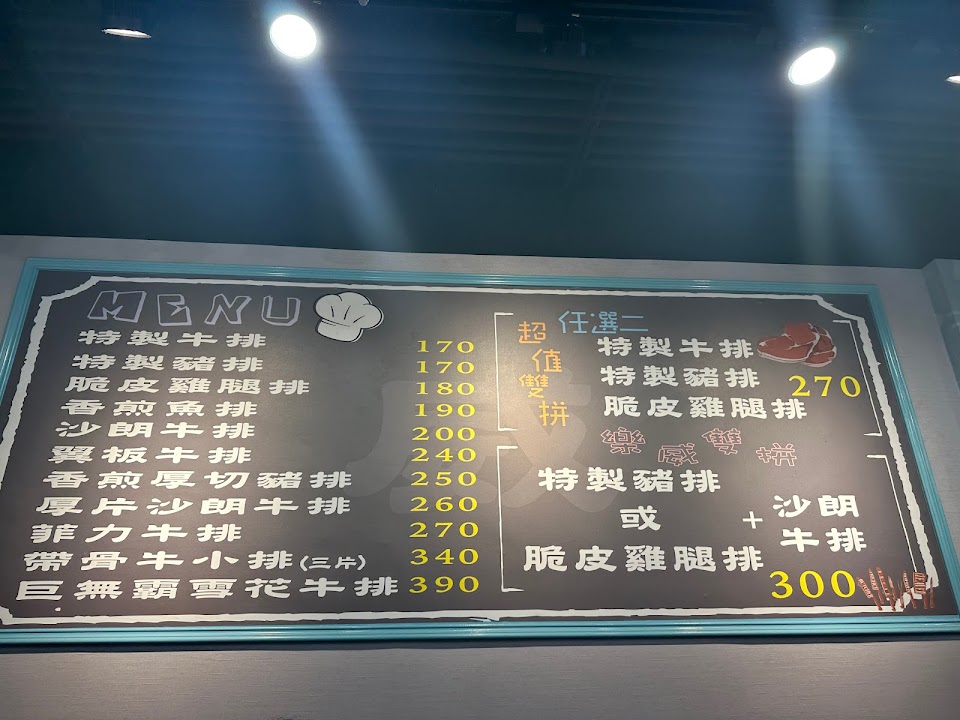 MENU
特製牛排 170
特製豬排 170
脆皮雞腿排 180
香煎魚排 190
沙朗牛排 200
翼板牛排 240
香煎厚切豬排 250
厚片沙朗牛排 260
菲力牛排 270
帶骨牛小排(三片) 340
巨無霸雪花牛排 390
超值雙拼
任選二
特製牛排
特製豬排
脆皮雞腿排
270
樂威雙拼
特製豬排
或
脆皮雞腿排
+
沙朗
牛排
300
威